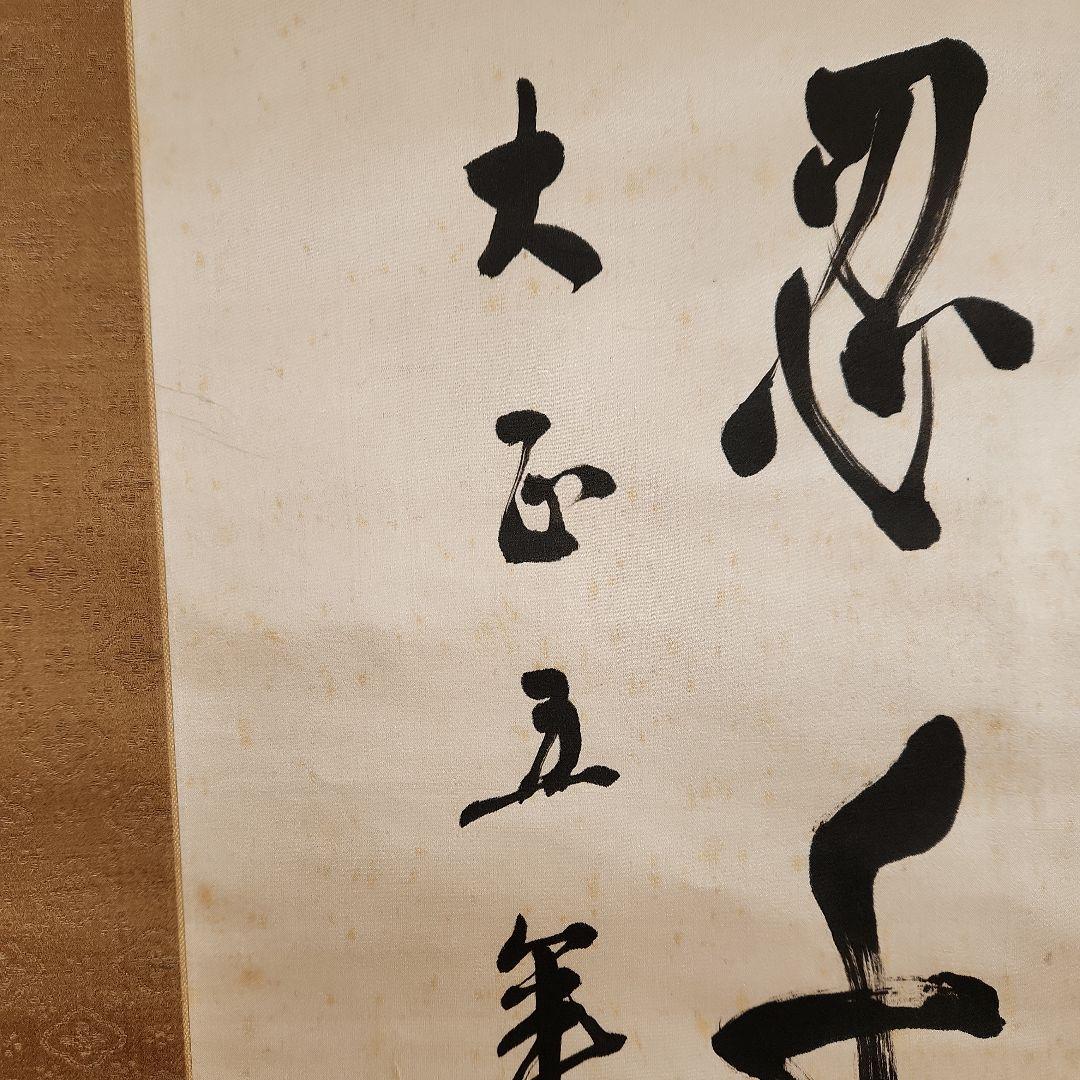 忍千
大正五年